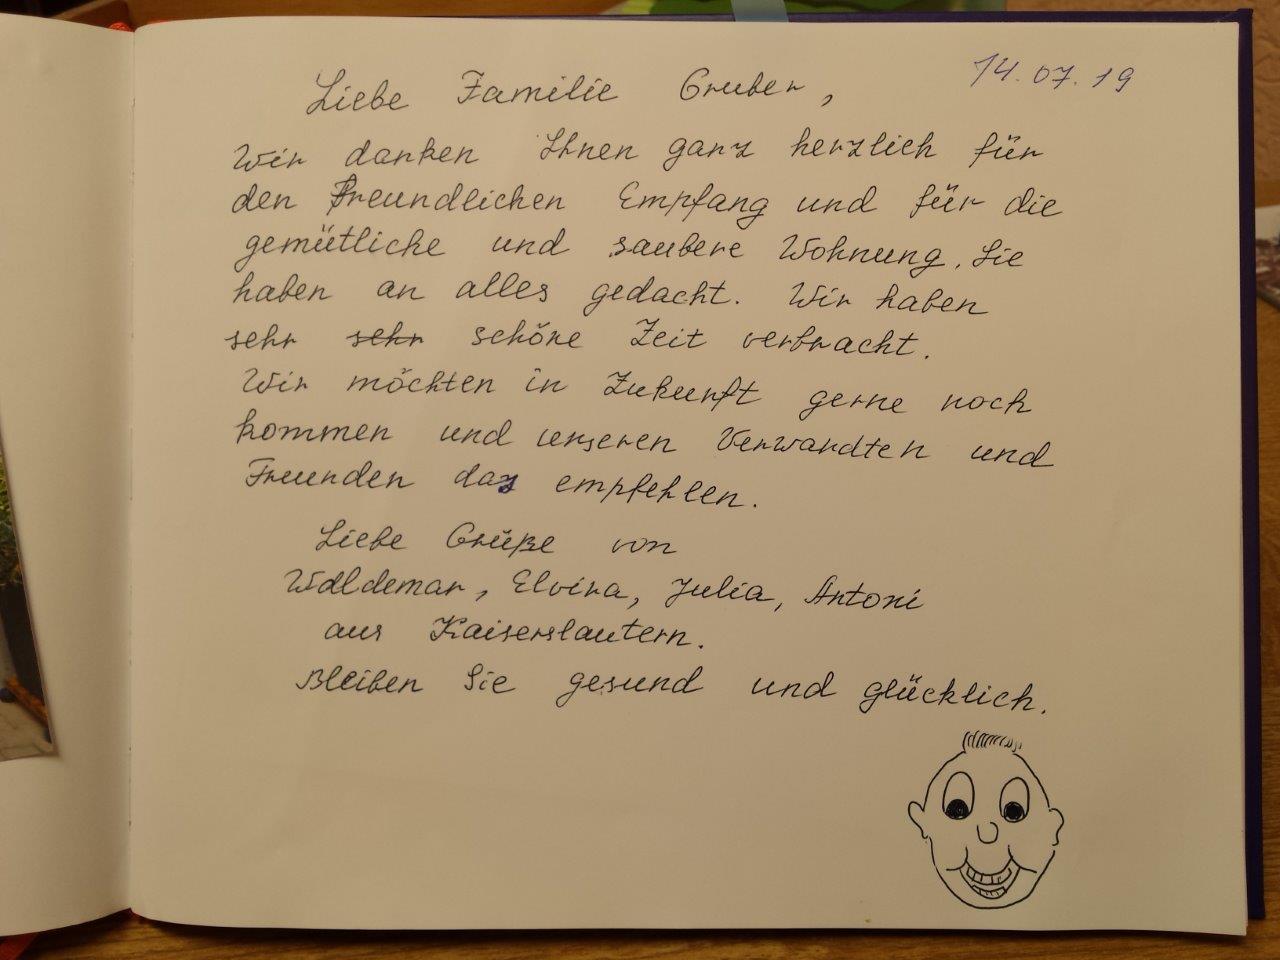 14.07.19
Liebe Familie Gruber,
Wir danken Ihnen ganz herzlich für
den Freundlichen Empfang und für die
gemütliche und saubere Wohnung. Sie
haben an alles gedacht. Wir haben
sehr sehr schöne Zeit verbracht.
Wir möchten in Zukunft gerne noch
kommen und unseren Verwandten und
Freunden das empfehlen.
Liebe Grüße von
Waldemar, Elvira, Julia, Antoni
aus Kaiserslautern.
Bleiben Sie gesund und glücklich.